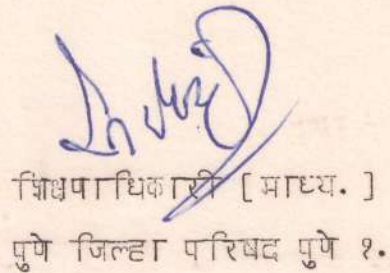 शिक्षणाधिकारी [ माध्य. ]
पुणे जिल्हा परिषद पुणे १.